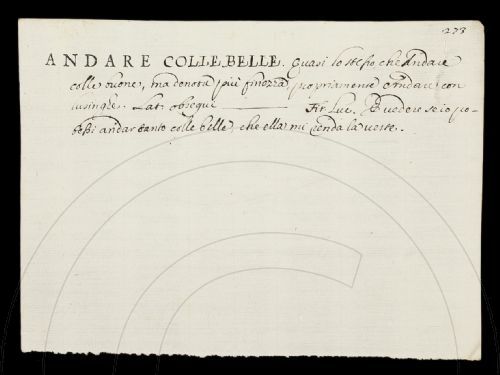 273
ANDARE COLLE BELLE. Quasi lo stesso, che Andare
colle buone, ma denota più finezza, propriamente Andare con
lusinghe. Lat. obsequi ——— Fir. Luc. A vedere se io po-
tessi andar tanto colle belle, che ella mi renda la veste.